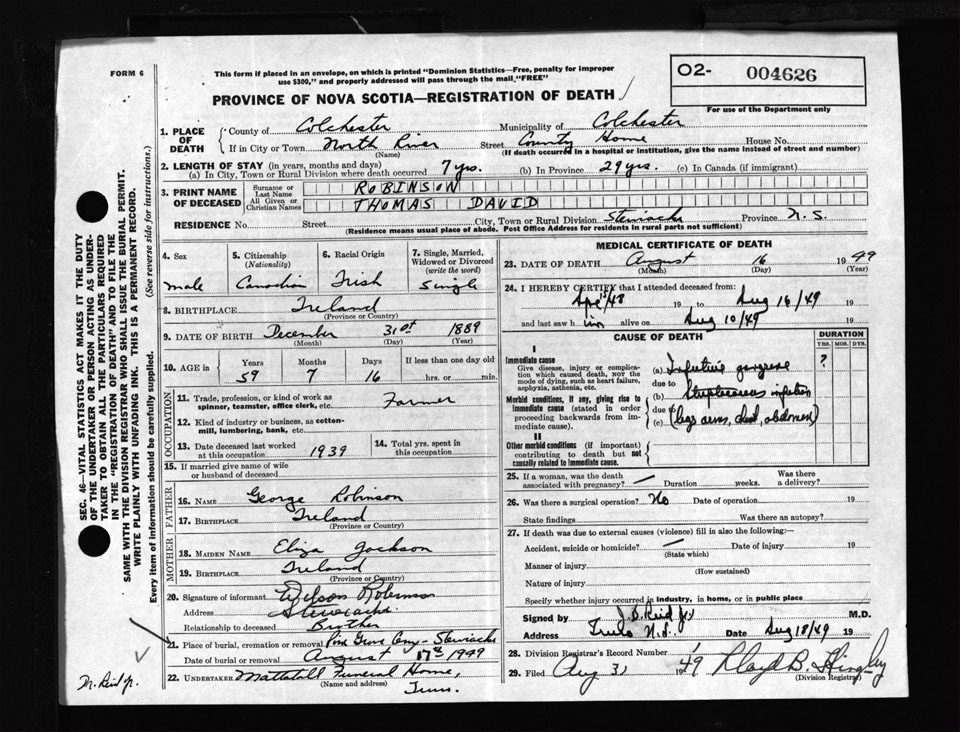 FORM 6
This form if placed in an envelope, on which is printed "Dominion Statistics—Free, penalty for improper
use $300," and properly addressed will pass through the mail "FREE"
O2- 004626
For use of the Department only
PROVINCE OF NOVA SCOTIA—REGISTRATION OF DEATH
1. PLACE OF DEATH
County of Colchester Municipality of Colchester
If in City or Town North River Street County Home House No.
(Name) (If death occurred in a hospital or institution, give the name instead of street and number)
2. LENGTH OF STAY (in years, months and days)
(a) In City, Town or Rural Division where death occurred 7 yrs. (b) In Province 29 yrs. (c) In Canada (if immigrant)
3. PRINT NAME OF DECEASED
Surname or Last Name ROBINSON
All Given or Christian Names THOMAS DAVID
RESIDENCE No. Street City, Town or Rural Division Stewiacke Province N. S.
(Residence means usual place of abode. Post Office Address for residents in rural parts not sufficient)
4. Sex
male
5. Citizenship
(Nationality)
Canadian
6. Racial Origin
Irish
7. Single, Married,
Widowed or Divorced
(write the word)
Single
8. BIRTHPLACE Ireland
(Province or Country)
9. DATE OF BIRTH December 31st 1889
(Month) (Day) (Year)
10. AGE in
Years Months Days If less than one day old
59 7 16 hrs. or min.
OCCUPATION
11. Trade, profession, or kind of work as
spinner, teamster, office clerk, etc. Farmer
12. Kind of industry or business, as cotton-
mill, lumbering, bank, etc.
13. Date deceased last worked
at this occupation 1939
14. Total yrs. spent in
this occupation
15. If married give name of wife
or husband of deceased
FATHER
16. NAME George Robinson
17. BIRTHPLACE Ireland
(Province or Country)
MOTHER
18. MAIDEN NAME Eliza Jackson
19. BIRTHPLACE Ireland
(Province or Country)
20. Signature of informant Wilson Robinson
Address Stewiacke.
Relationship to deceased Brother
21. Place of burial, cremation or removal Pine Grove Cemy - Stewiacke
Date of burial or removal August 17th 1949
22. UNDERTAKER Mattatall Funeral Home,
(Name and address) Truro.
MEDICAL CERTIFICATE OF DEATH
23. DATE OF DEATH August 16 1949
(Month) (Day) (Year)
24. I HEREBY CERTIFY that I attended deceased from:
19 to Aug 16/49 19
and last saw him alive on Aug 10/49 19
CAUSE OF DEATH
DURATION
YRS. MOS. DYS.
I
Immediate cause
Give disease, injury or complica-
tion which caused death, NOT the
mode of dying, such as heart failure,
asphyxia, asthenia, etc.
(a) Infective gangrene ?
due to
Morbid conditions, if any, giving rise to
immediate cause (stated in order
proceeding backwards from im-
mediate cause).
(b) Streptococcus infection
due to
(c) (legs arms, chest, abdomen)
II
Other morbid conditions (if important)
contributing to death but not
causally related to immediate cause.
25. If a woman, was the death
associated with pregnancy? — Duration weeks. Was there
a delivery?
26. Was there a surgical operation? No Date of operation 19
State findings Was there an autopsy?
27. If death was due to external causes (violence) fill in also the following:—
Accident, suicide or homicide? — Date of injury 19
(State which)
Manner of injury
(How sustained)
Nature of injury
Specify whether injury occurred in industry, in home, or in public place
Signed by J. B. Reid Jr M.D.
Address Truro N.S. Date Aug 18/49 19
28. Division Registrar's Record Number
29. Filed Aug 31 1949 Lloyd B.
(Division Registrar)
SEC. 46—VITAL STATISTICS ACT MAKES IT THE DUTY
OF THE UNDERTAKER OR PERSON ACTING AS UNDER-
TAKER TO OBTAIN ALL THE PARTICULARS REQUIRED
IN THE "REGISTRATION OF DEATH" AND TO FILE THE
SAME WITH THE DIVISION REGISTRAR WHO SHALL ISSUE THE BURIAL PERMIT.
WRITE PLAINLY WITH UNFADING INK. THIS IS A PERMANENT RECORD.
Every item of information should be carefully supplied. (See reverse side for instructions.)
N. Reid Jr.